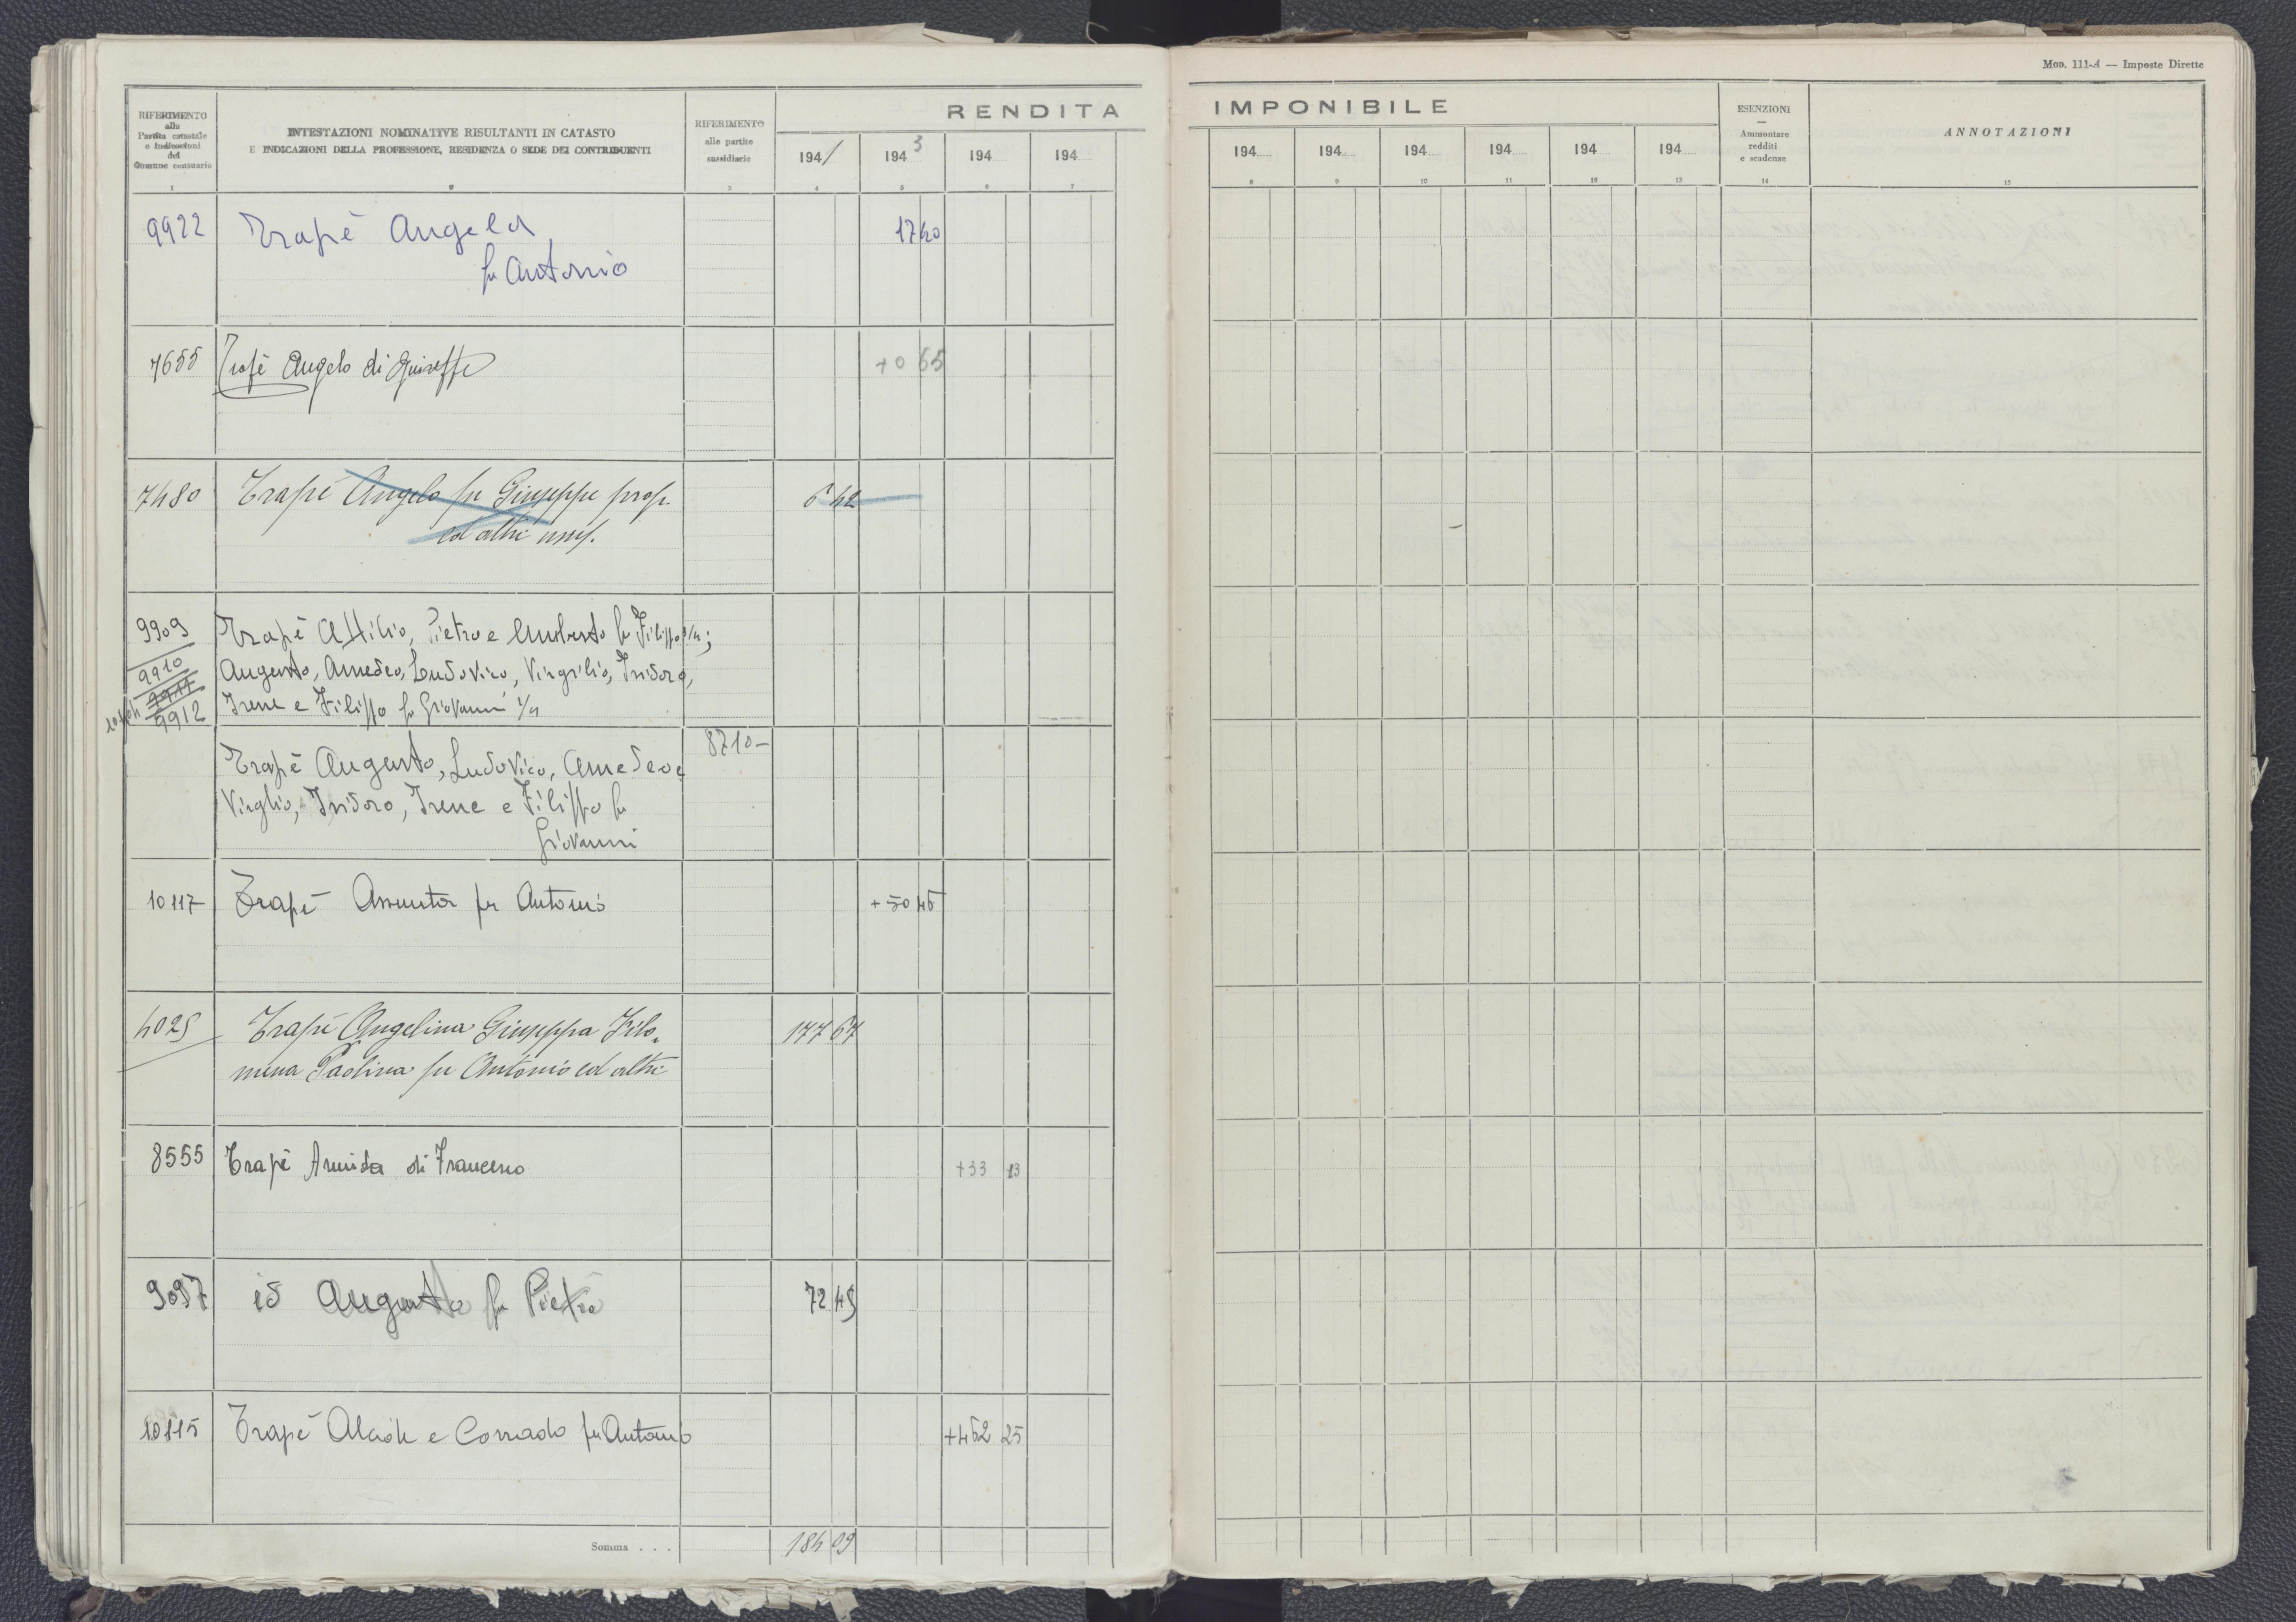 Mod. 111-A — Imposte Dirette
RIFERIMENTO
alla
Partita catastale
e indicazioni
del
Comune censuario
INTESTAZIONI NOMINATIVE RISULTANTI IN CATASTO
E INDICAZIONI DELLA PROFESSIONE, RESIDENZA O SEDE DEI CONTRIBUENTI
RIFERIMENTO
alle partite
sussidiarie
RENDITA IMPONIBILE
194/ 194 3 194 194 194 194 194 194 194 194
ESENZIONI
—
Ammontare
redditi
e scadenze
ANNOTAZIONI
1 2 3 4 5 6 7 8 9 10 11 12 13 14 15
9922 Trapè Angela 17 40
fu Antonio
7655 Trapè Angelo di Giuseppe +0 65
7480 Trapè Angelo fu Giuseppe prop. 6 42
ed altri
9909 Trapè Attilio, Pietro e Umberto fu Filippo 3/4;
9910 Augusto, Amedeo, Ludovico, Virgilio, Isidoro,
9911
9912 Irene e Filippo fu Giovanni 1/4
Trapè Augusto, Ludovico, Amedeo, 8710-
Virgilio, Isidoro, Irene e Filippo fu
Giovanni
10117 Trapè Assunta fu Antonio +50 45
4025 Trapè Angelina Giuseppa Filo- 177 67
mena Paolina fu Antonio ed altri
8555 Trapè Armida di Francesco +33 13
9097 id Augusto fu Pietro 72 49
10115 Trapè Alcide e Corrado fu Antonio +462 25
Somma . . . 184 09